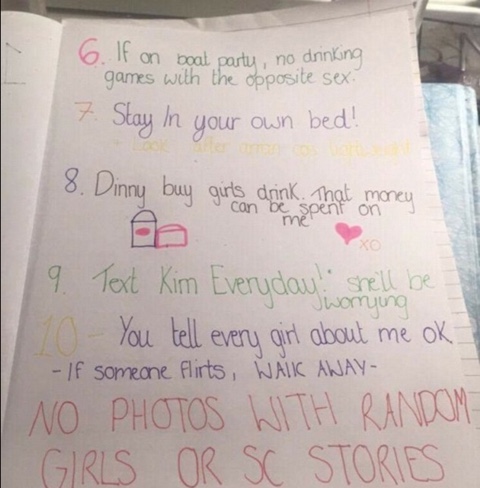 6. If on boat party, no drinking
games with the opposite sex.
7. Stay In your own bed!
* Look after
8. Dinny buy girls drink. That money
can be spent on
me
xo
9. Text Kim Everyday!* she'll be
worrying
10 - You tell every girl about me OK
- If someone flirts, WALK AWAY -
NO PHOTOS WITH RANDOM
GIRLS OR SC STORIES